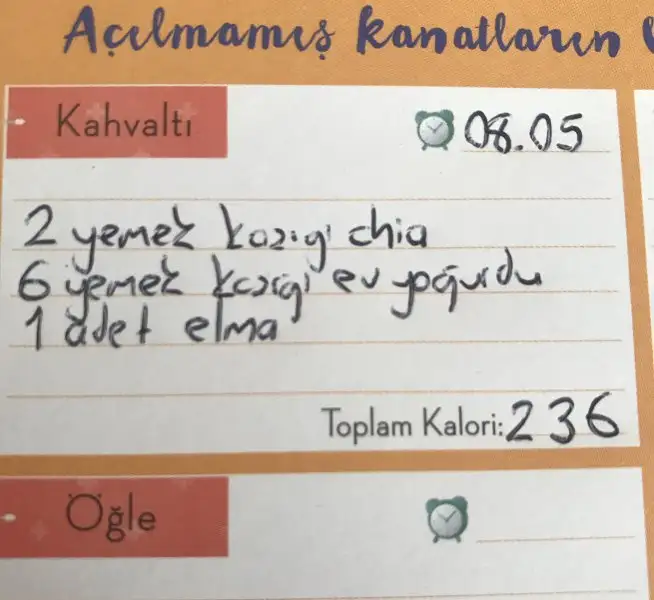 Açılmamış kanatların
Kahvaltı
08.05
2 yemek kazıgı chia
6 yemek kazıgı ev yoğurdu
1 adet elma
Toplam Kalori: 236
Öğle